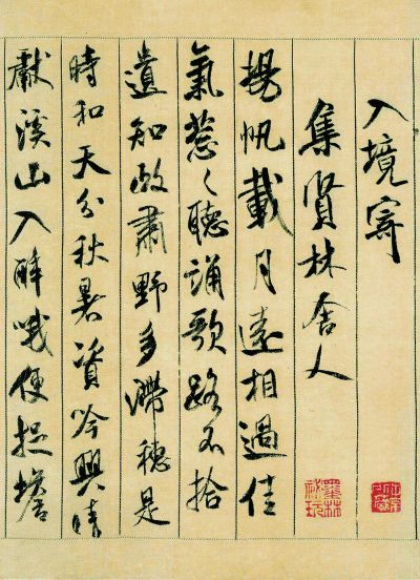 入境寄
集賢林舍人
揚帆載月遠相過佳
氣葱々聽誦歌路不拾
遺知政肅野多滯穗是
時和天分秋暑資吟興晴
獻溪山入醉哦便捉蟾
墨林秘玩